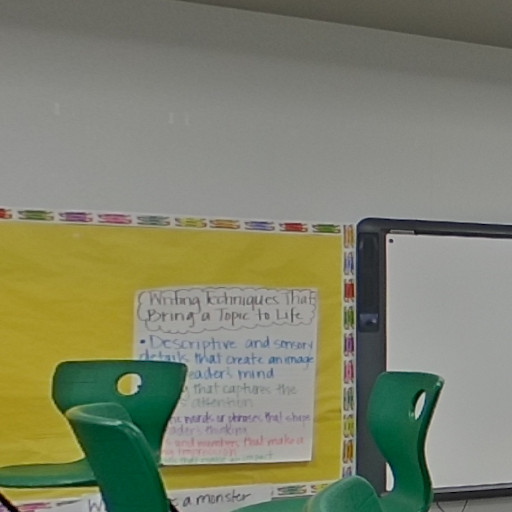 Writing Techniques That
Bring a Topic to Life
• Descriptive and sensory
details that create an image
eader's mind
that captures the
attention
words or phrases that shape
aders thinking
and numbers that make a
impression
a monster